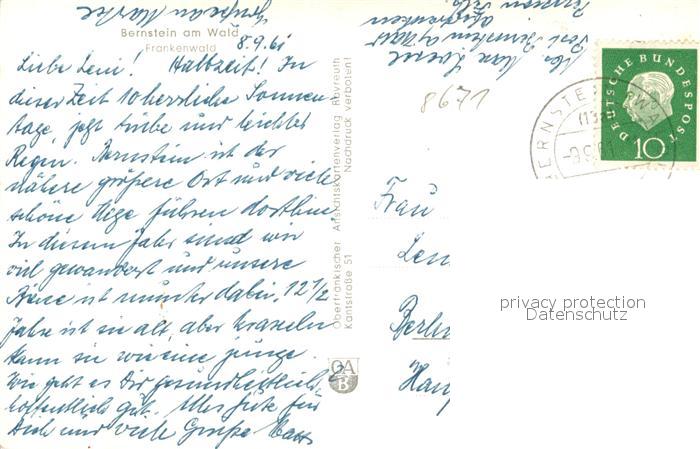 Bernstein am Wald
Frankenwald
8.9.61
Liebe Leni! Halbzeit! In
dieser Zeit 10 herzliche Sonnen-
tage, jetzt trübe und leichter
Regen. Bernstein ist der
nähere größere Ort und viele
schöne Wege führen dorthin.
In diesem Jahr sind wir
viel gewandert und unsere
ist munter dabei. 12 1/2
Jahre ist sie alt, aber kraxeln
kann sie wie eine junge.
Wie geht es Dir gesundheitlich,
hoffentlich gut. Alles Gute für
Dich und viele Grüße
Oberfränkischer Ansichtskartenverlag Bayreuth
Kantstraße 51 Nachdruck verboten!
OAB
8671
DEUTSCHE BUNDESPOST
10
BERNSTE
(13
-9.9.61
Frau
Len
Berlin
privacy protection
Datenschutz